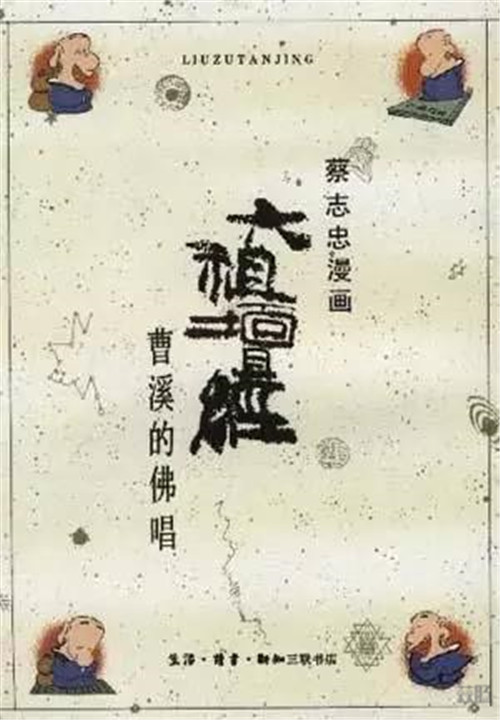 LIUZUTANJING
蔡志忠漫画
六祖壇經
曹溪的佛唱
生活·读书·新知三联书店